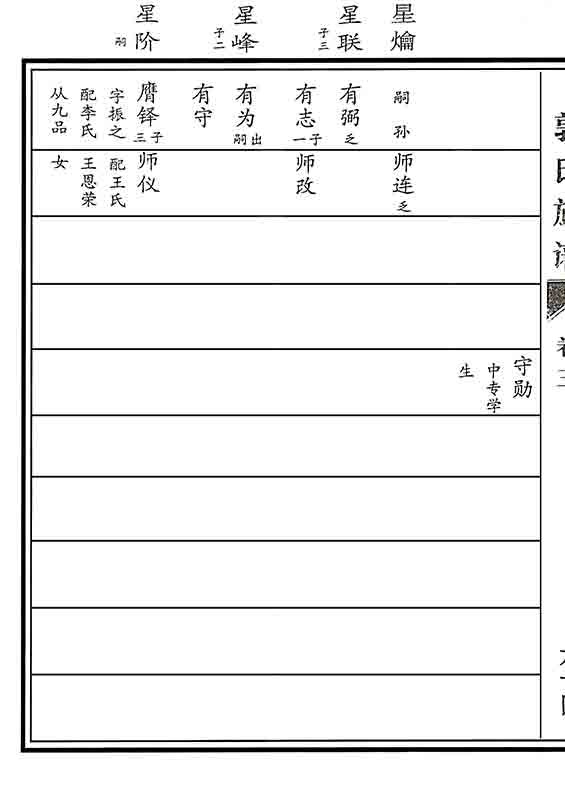 星爚
星联
子三
星峰
子二
星阶
嗣
嗣孙
有弼
乏
有志
子一
有为
出嗣
有守
膺铎
子三
字振之
配李氏
从九品
师连
乏
师改
师仪
配王氏
王恩荣
女
守勋
中专学
生
氏
卷三